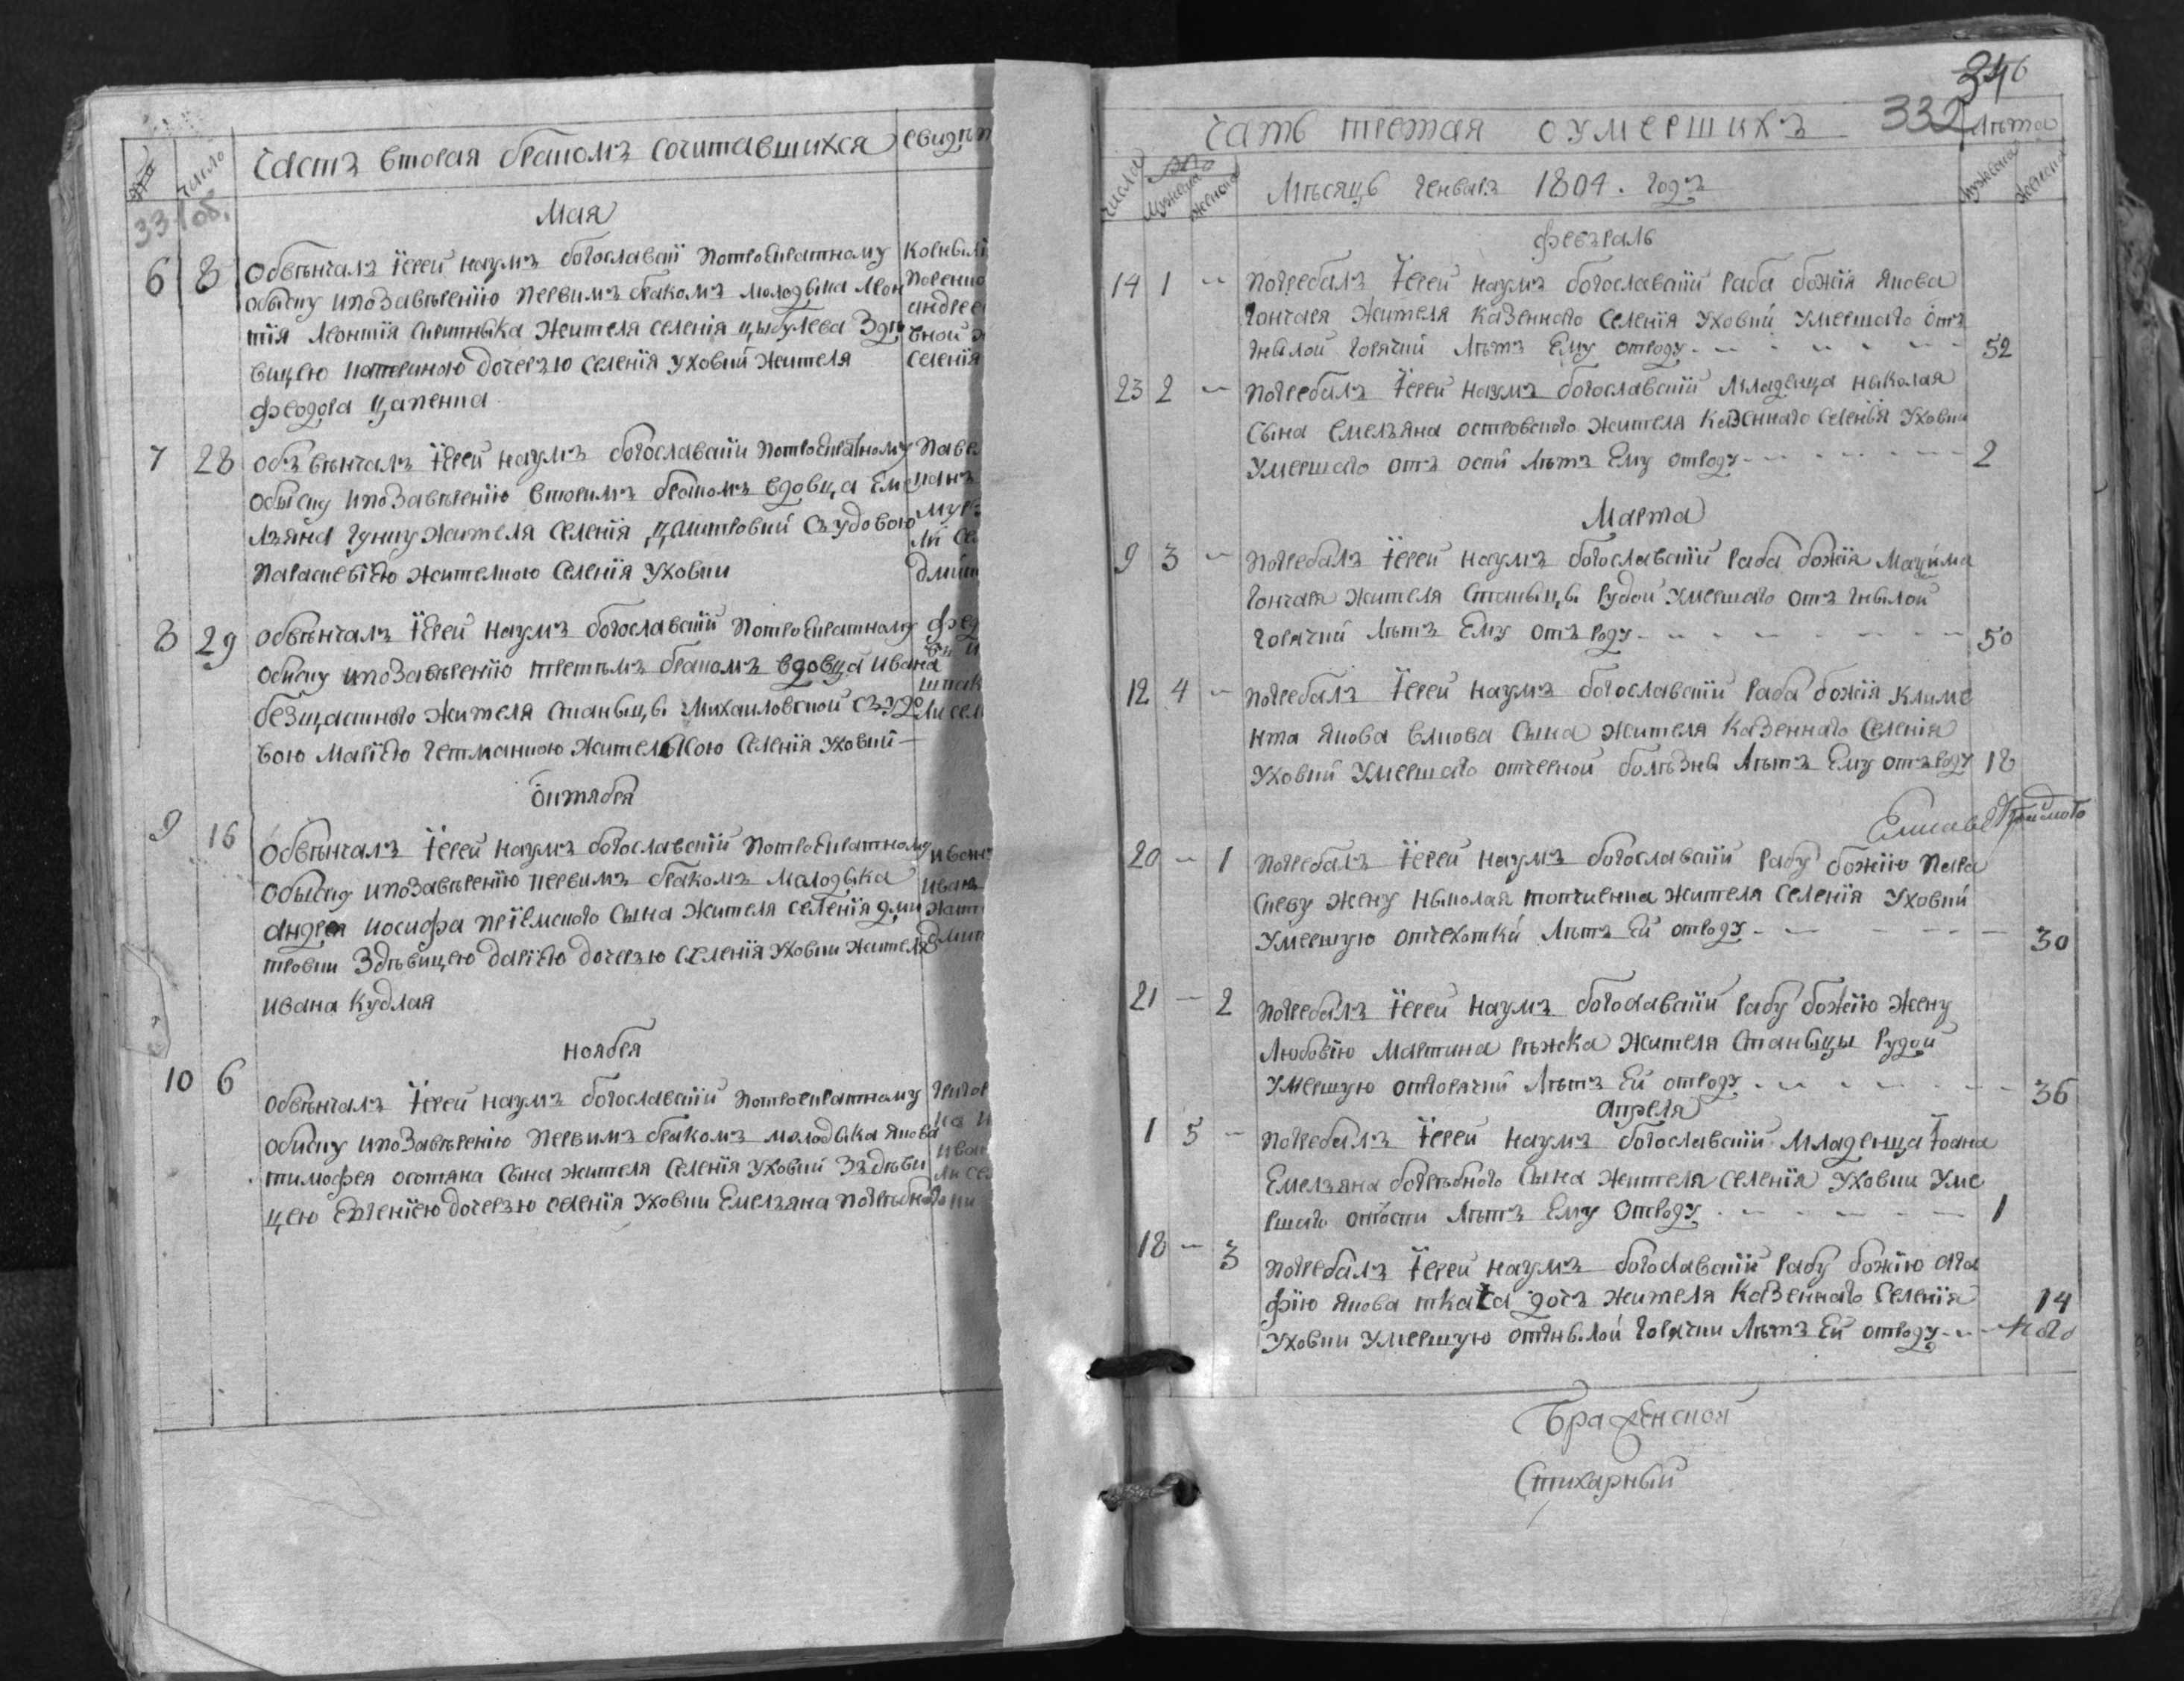 часть вторая бракомъ сочитавшихся
число
331 об.
Мая
6 8 Обвѣнчалъ Їерей наумъ богославскїй потроекратному
обыску ипозавѣренїю первимъ бракомъ молодыка леон
тїя леонтїя ситныка жителя селенїя цыбулева Здѣ
вицею катериною дочерзю селенїя уховки жителя
феодора цапенка
7 28 объ вѣнчалъ Їерей наумъ богославскїи потроекратному
обыску ипозавѣренїю вторимъ бракомъ вдовца Еме
лзяна гунку жителя селенїя дмитровки Сзудовою
параскевїею жителкою селенїя уховки
8 29 обвѣнчалъ Їерей наумъ богославскїй потроекратному
обиску ипозавѣренїю третѣмъ бракомъ вдовца ивана
безщастного жителя станыцы михаиловской Сзудо
вою марїею гетманкою жителькою селенїя уховки
октября
9 16 Обвѣнчалъ Їерей наумъ богославскїй потроекратному
обыску ипозавѣренїю первимъ бракомъ молодыка
андрея иосифа прїемского сына жителя селенїя дми
тровки Здѣвицею дарїею дочерзю селенїя уховки жителя
ивана кудлая
ноября
10 6 обвѣнчалъ Їерей наумъ богославскїй потроекратному
обиску ипозавѣренїю первимъ бракомъ молодыка якова
тимофея осотяна сына жителя селенїя уховки Зъдѣви
цею Евгенїею дочерзю селенїя уховки Емелзяна погребного
346
332
чать третая оумершихъ
лѣта
числа мужеска женска
Мѣсяцъ генварь 1804. годъ
мужеска женска
февраль
14 1 погребалъ Їерей наумъ богославскїй раба божїя якова
гончаря жителя казенного селенїя уховки умершаго отъ
гнылой горячки лѣтъ Ему отроду 52
23 2 погребалъ Їерей наумъ богославскїй младенца николая
сына емелзяна островского жителя казенного селенїя уховки
умершаго отъ оспи лѣтъ Ему отроду 2
Марта
9 3 погребалъ Їерей наумъ богославскїй раба божїя Мауима
гончаря жителя станыцы рудой умершаго отъ гнылой
горячки лѣтъ Ему отъ роду 50
12 4 погребалъ Їерей наумъ богославскїй раба божїя климе
нта якова сына жителя казенного селенїя
уховки умершаго отчерной болѣзны лѣтъ Ему отъ роду 18
20 1 погребалъ Їерей наумъ богославскїй рабу божїю пара
скеву жену николая топчиенка жителя селенїя уховки
умершую отчехотки лѣтъ Ей отроду 30
21 2 погребалъ Їерей наумъ богославскїй рабу божїю жену
любовїю мартина рѣжка жителя станыцы рудой
умершую отгорячки лѣтъ Ей отроду 36
апреля
1 5 погребалъ Їерей наумъ богославскїй младенца Їоана
Емелзяна богрѣбного сына жителя селенїя уховки уме
ршаго отоспи лѣтъ Ему отроду 1
18 3 погребалъ Їерей наумъ богославскїй рабу божїю ага
фїю якова ткача дочъ жителя казенного селенїя 14
уховки умершую отгнылой горячки лѣтъ Ей отроду
Стихарный